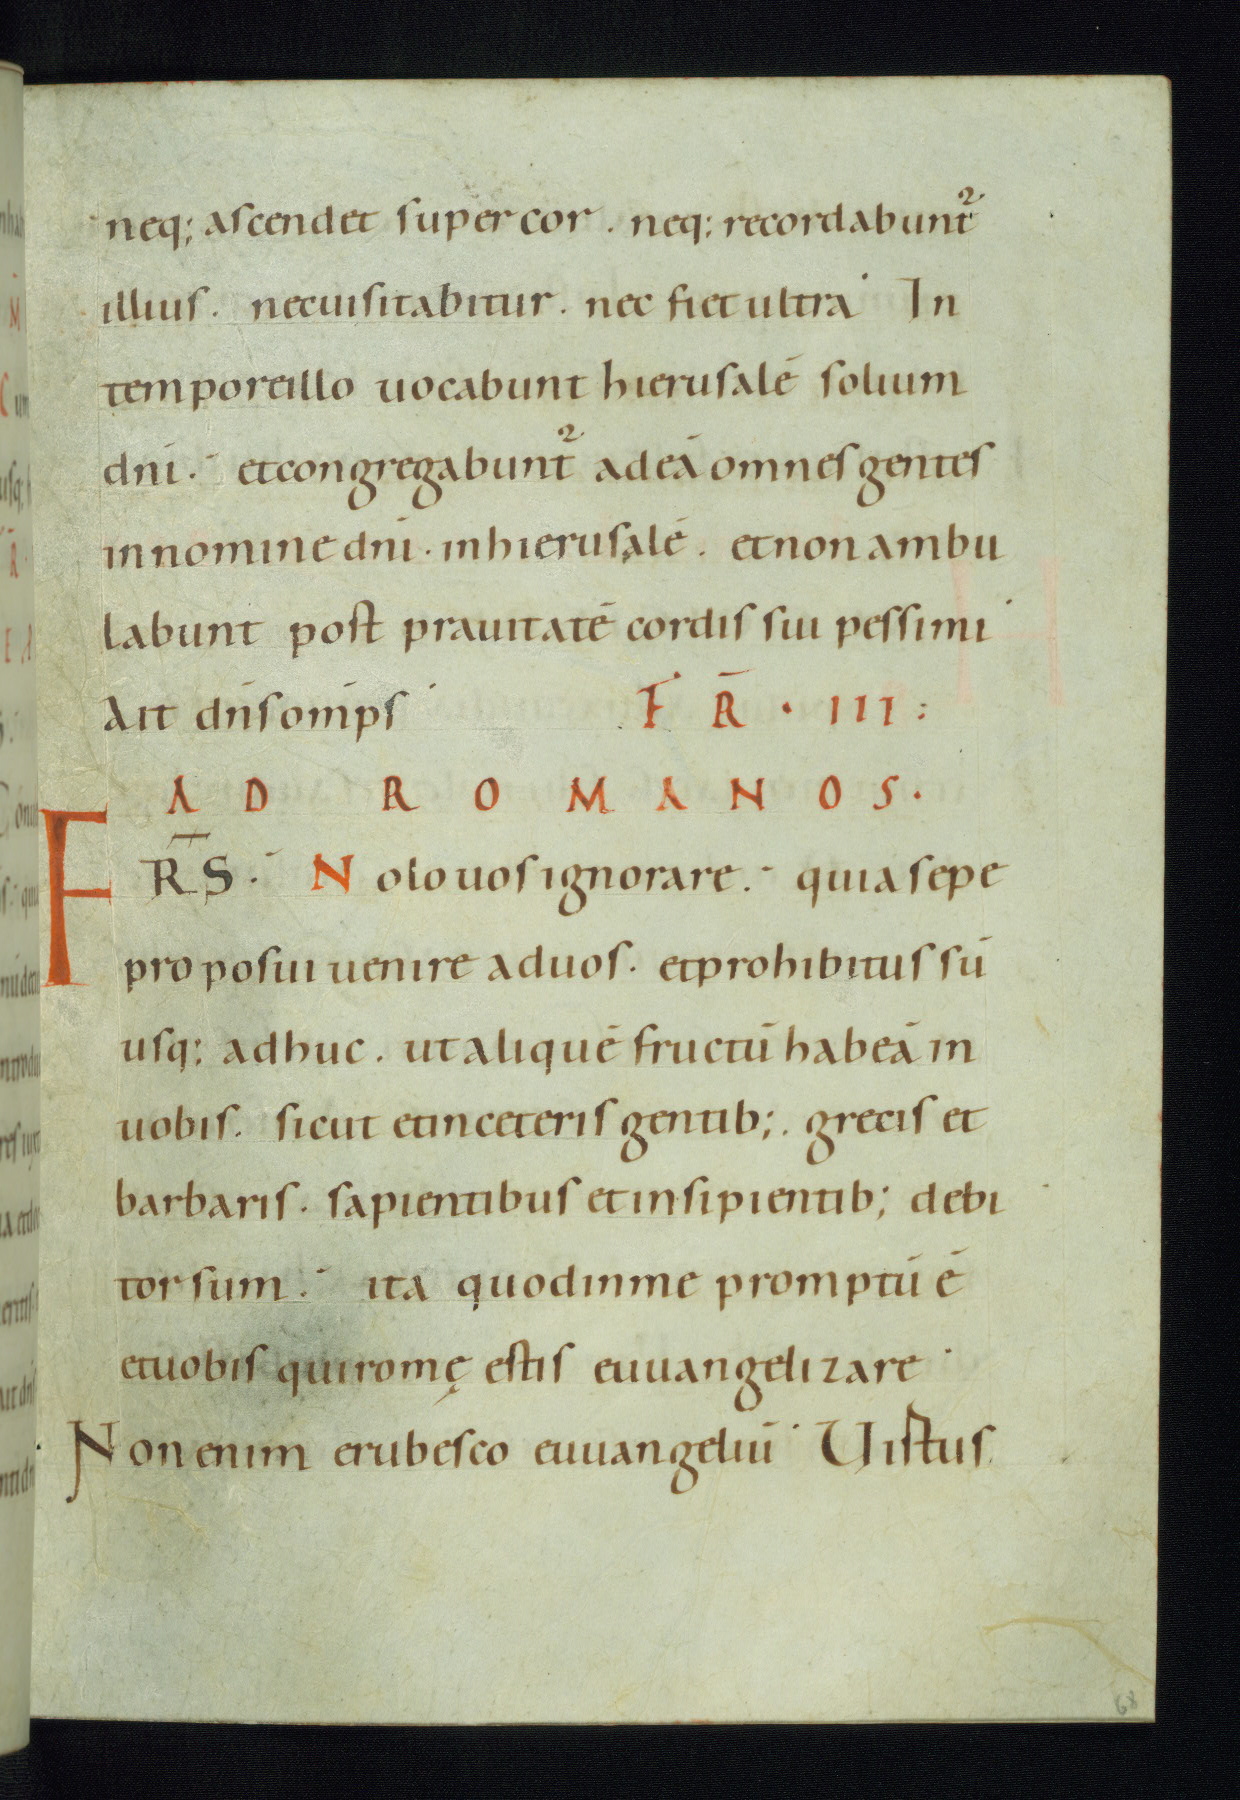 neq; ascendet super cor. neq; recordabunt᷑
illius. nec uisitabitur. nec fiet ultra. In
tempore illo uocabunt hierusalē solium
dn̄i. et congregabunt᷑ ad eā omnes gentes
in nomine dn̄i. in hierusalē. et non ambu
labunt post prauitatē cordis sui pessimi.
Ait dn̄s om̄ps. F R̄ · III :
AD ROMANOS.
FR̄S. Nolo uos ignorare. quia sepe
proposui uenire ad uos. et prohibitus sū
usq; adhuc. ut aliquē fructū habeā in
uobis. sicut et in ceteris gentib;. grecis et
barbaris. sapientibus et insipientib; debi
tor sum. ita quod in me promptū ē
et uobis qui romę estis euuangelizare.
Non enim erubesco euuangeliū. Uistus.
68